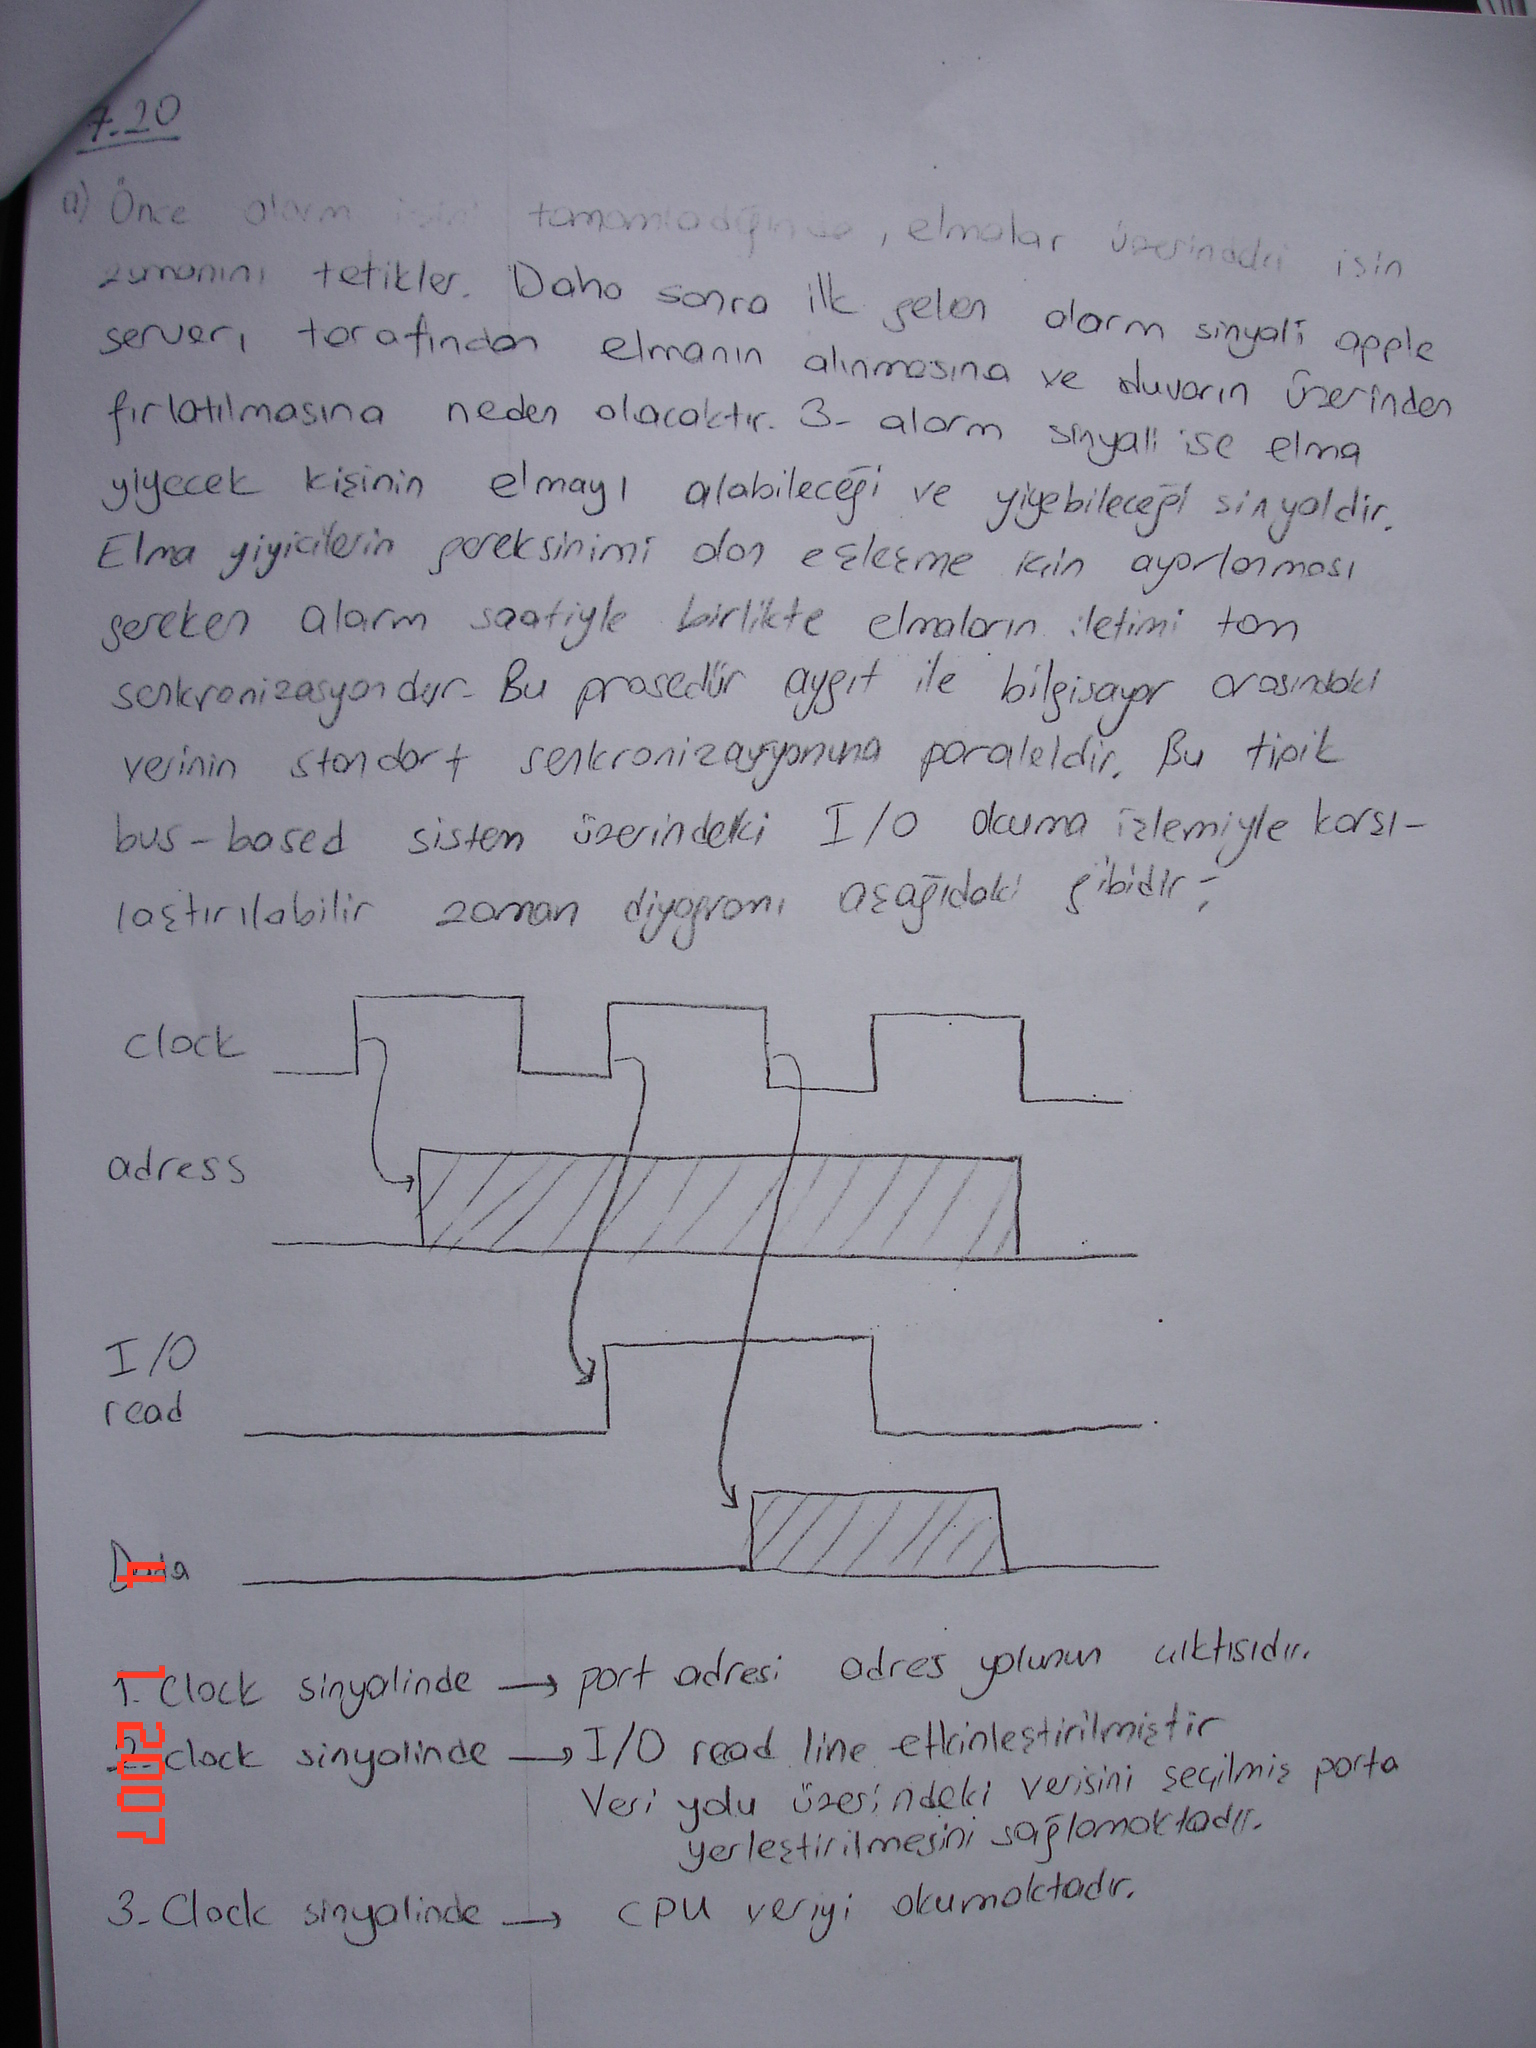 7.20
a) Önce alarm işini tamamladığında, elmalar üzerindeki işin
zamanını tetikler. Daha sonra ilk gelen alarm sinyali apple
serverı tarafından elmanın alınmasına ve duvarın üzerinden
fırlatılmasına neden olacaktır. 3- alarm sinyali ise elma
yiyecek kişinin elmayı alabileceği ve yiyebileceği sinyaldir.
Elma yiyicilerin gereksinimi olan eşleşme için ayarlanması
gereken alarm saatiyle birlikte elmaların iletimi tam
senkronizasyondur. Bu prosedür aygıt ile bilgisayar arasındaki
verinin standart senkronizasyonuna paraleldir. Bu tipik
bus-based sistem üzerindeki I/O okuma izlemiyle karşı-
laştırılabilir zaman diyagramı aşağıdaki gibidir;
clock
adress
I/O
read
Data
1. Clock sinyalinde → port adresi adres yolunun çıktısıdır.
2. clock sinyalinde → I/O read line etkinleştirilmiştir
Veri yolu üzerindeki verisini seçilmiş porta
yerleştirilmesini sağlamaktadır.
3- Clock sinyalinde → CPU veriyi okumaktadır.
4 1 2007